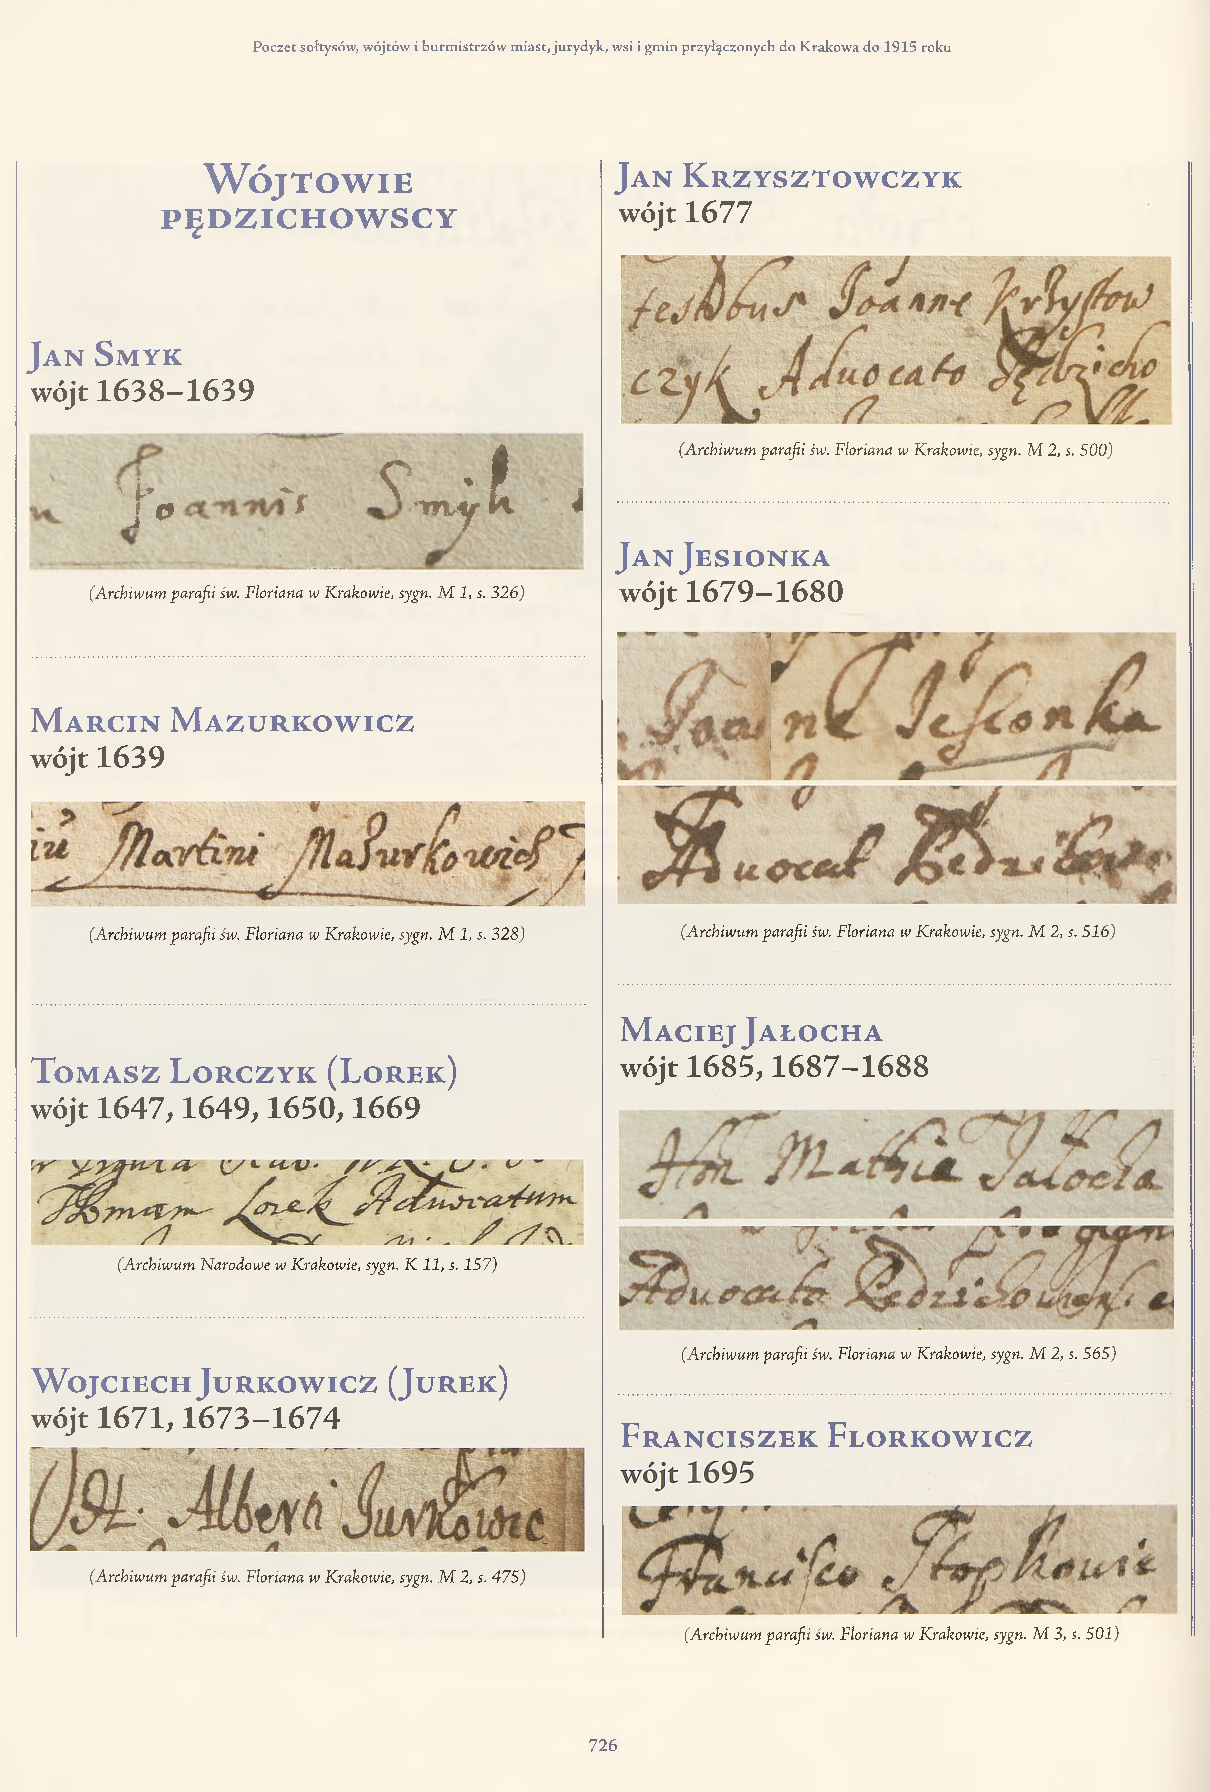 Poczet sołtysów, wójtów i burmistrzów miast, jurydyk, wsi i gmin przyłączonych do Krakowa do 1915 roku
Wójtowie
pędzichowscy
Jan Smyk
wójt 1638–1639
Joannis Smyk
(Archiwum parafii św. Floriana w Krakowie, sygn. M 1, s. 326)
Marcin Mazurkowicz
wójt 1639
Martini Mazurkowich
(Archiwum parafii św. Floriana w Krakowie, sygn. M 1, s. 328)
Tomasz Lorczyk (Lorek)
wójt 1647, 1649, 1650, 1669
Thomam Lorek Advocatum
(Archiwum Narodowe w Krakowie, sygn. K 11, s. 157)
Wojciech Jurkowicz (Jurek)
wójt 1671, 1673–1674
Alberti Jurkowic
(Archiwum parafii św. Floriana w Krakowie, sygn. M 2, s. 475)
Jan Krzysztowczyk
wójt 1677
testibus Joanne Krzysztow
czyk Aduocato Pędzicho
(Archiwum parafii św. Floriana w Krakowie, sygn. M 2, s. 500)
Jan Jesionka
wójt 1679–1680
Joanne Jesionka
Aduocat
(Archiwum parafii św. Floriana w Krakowie, sygn. M 2, s. 516)
Maciej Jałocha
wójt 1685, 1687–1688
Hon Mathia Jałocha
Aduocato
(Archiwum parafii św. Floriana w Krakowie, sygn. M 2, s. 565)
Franciszek Florkowicz
wójt 1695
Francisco
(Archiwum parafii św. Floriana w Krakowie, sygn. M 3, s. 501)
726